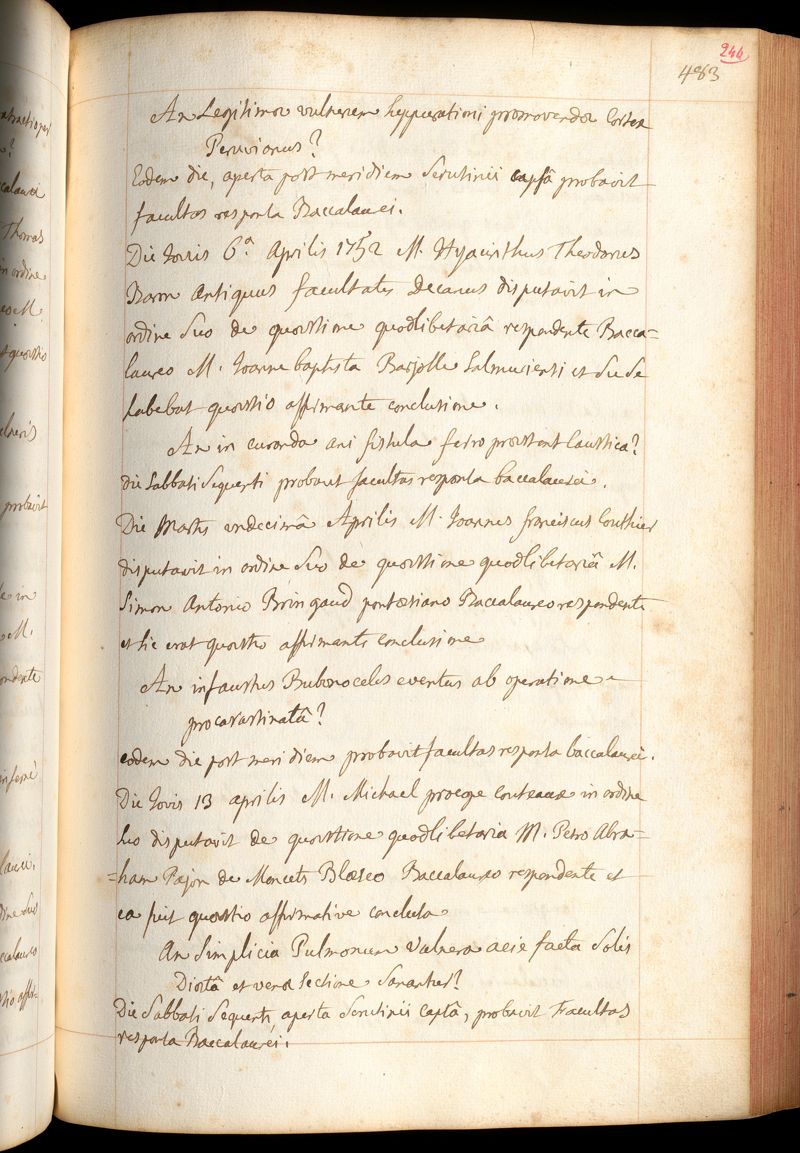 246
483
An Legitimae vulnerum suppurationi promovendae Cortex
Peruvianus?
Eodem die, aperta post meridiem Scrutinii capsâ probavit
facultas responsa Baccalaurei.
Die Jovis 6.ª Aprilis 1752 M. Hyacinthus Theodorus
Baron Antiquus facultatis Decanus disputavit in
ordine Suo de quaestione quodlibetariâ respondente Bacca=
laureo M. Joanne baptista Barjolle Salmuriensi et Sic Se
habebat quaestio affirmante conclusione.
An in curanda ani fistula ferro praestent Caustica?
die Sabbati Sequenti probavit facultas responsa baccalaurei.
Die Martis undecimâ Aprilis M. Joannes franciscus Couthier
disputavit in ordine Suo de quaestione quodlibetariâ M.
Simon Antonio Bringaud pontaesiano Baccalaureo respondente
et sic erat quaestio affirmante conclusione
An infaustus Bubonoceles eventus ab operatione
procrastinatâ?
eodem die post meridiem probavit facultas responsa baccalaurei.
Die Jovis 13 aprilis M. Michael procope couteaux in ordine
suo disputavit de quaestione quodlibetaria M. Petro Abra=
=ham Pajon de Moncets Blaeseo Baccalaureo respondente et
ea fuit quaestio affirmative conclusa
An Simplicia Pulmonum Vulnera acie facta Solis
Diaetâ et venae Sectione Sanantur?
Die Sabbati Sequenti, aperta Scrutinii Capsâ, probavit Facultas
responsa Baccalaurei.